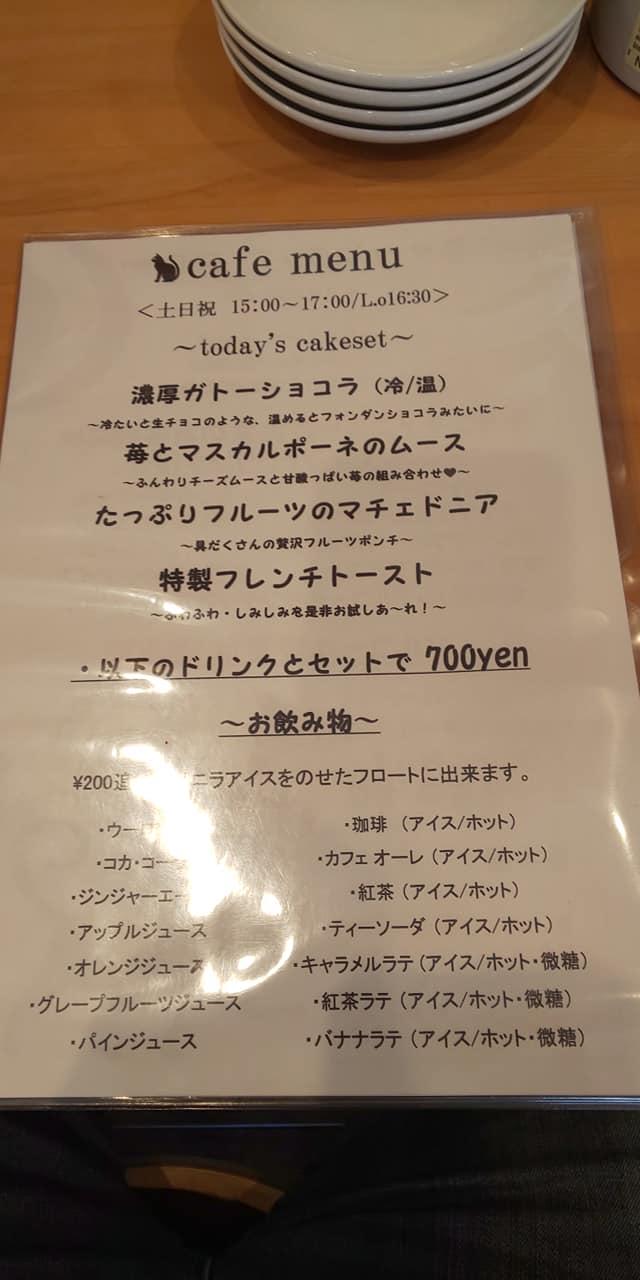 cafe menu
＜土日祝 15:00～17:00/L.o16:30＞
～today's cakeset～
濃厚ガトーショコラ（冷/温）
～冷たいと生チョコのような、温めるとフォンダンショコラみたいに～
苺とマスカルポーネのムース
～ふんわりチーズムースと甘酸っぱい苺の組み合わせ♥～
たっぷりフルーツのマチェドニア
～具だくさんの贅沢フルーツポンチ～
特製フレンチトースト
～ふわふわ・しみしみを是非お試しあ～れ！～
・以下のドリンクとセットで 700yen
～お飲み物～
¥200追 ニラアイスをのせたフロートに出来ます。
・ウー
・コカ・コー
・ジンジャーエー
・アップルジュース
・オレンジジュース
・グレープフルーツジュース
・パインジュース
・珈琲 （アイス/ホット）
・カフェ オーレ （アイス/ホット）
・紅茶 （アイス/ホット）
・ティーソーダ （アイス/ホット）
・キャラメルラテ （アイス/ホット・微糖）
・紅茶ラテ （アイス/ホット・微糖）
・バナナラテ （アイス/ホット・微糖）